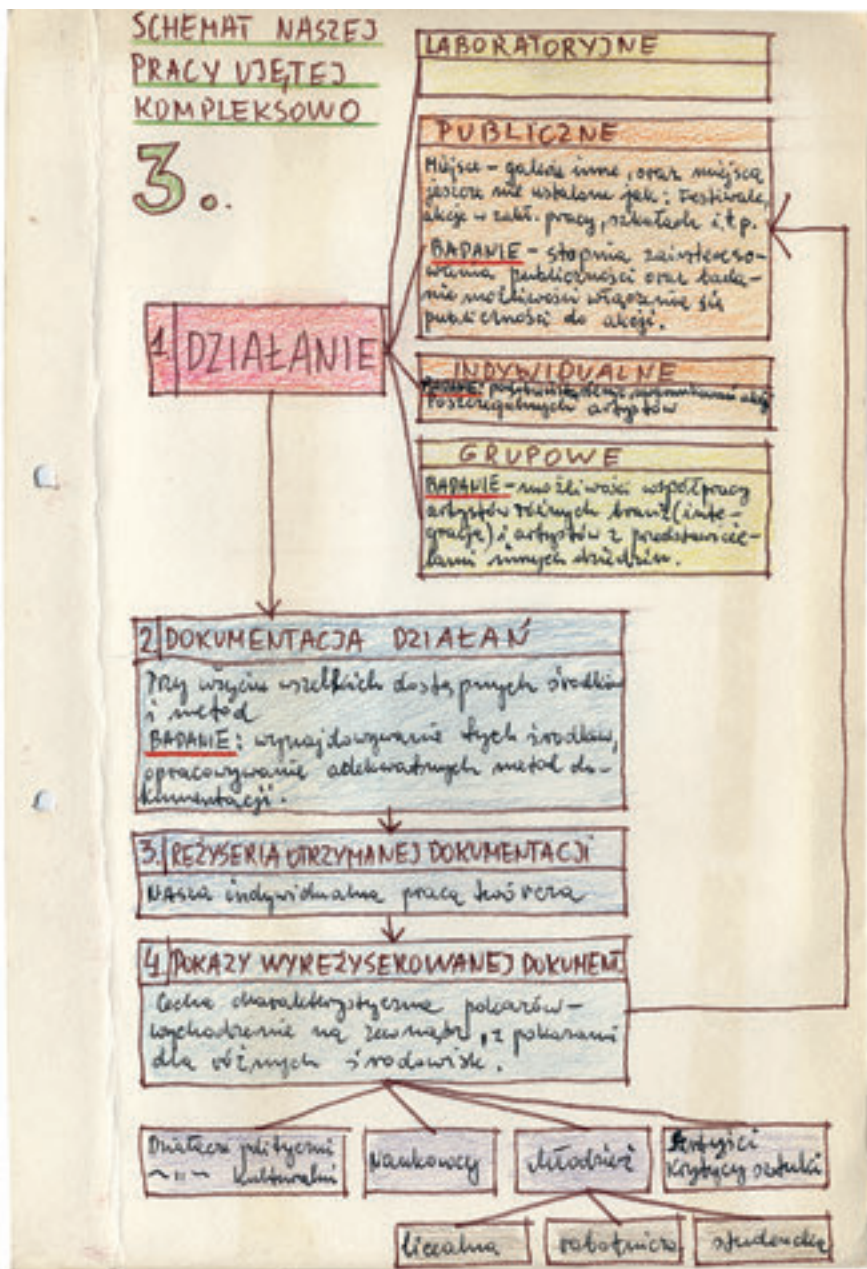 SCHEMAT NASZEJ
PRACY UJĘTEJ
KOMPLEKSOWO
3.
LABORATORYJNE
PUBLICZNE
Miejsce – galerie inne, oraz miejsca
jeszcze nie ustalone jak: Festiwale,
akcje w zakł. pracy, szkołach i t p.
BADANIE – stopnia zaintereso-
wania publiczności oraz bada-
nie możliwości włączenia się
publiczności do akcji.
1. DZIAŁANIE
INDYWIDUALNE
BADANIE: akcji
poszczególnych artystów
GRUPOWE
BADANIE – możliwości współpracy
artystów różnych branż (inte-
gracje) i artystów z przedstawicie-
lami innych dziedzin.
2. DOKUMENTACJA DZIAŁAŃ
Przy użyciu wszelkich dostępnych środków
i metod
BADANIE: wynajdowywanie tych środków,
opracowywanie adekwatnych metod do-
kumentacji.
3. REŻYSERIA OTRZYMANEJ DOKUMENTACJI
Nasza indywidualna praca twórcza
4. POKAZY WYREŻYSEROWANEJ DOKUMENT.
Cecha charakterystyczna pokazów –
wychodzenie na zewnątrz, z pokazami
dla różnych środowisk.
Działacze polityczni
~ " ~ kulturalni
Naukowcy
Młodzież
Artyści
Krytycy sztuki
licealna
robotnicza
studencka